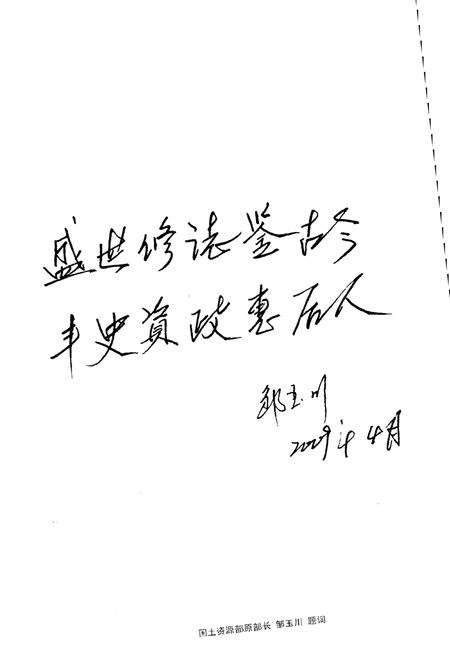 盛世修誌鉴古今
丰史資政惠后人
邹玉川
2009年4月
国土资源部原部长 邹玉川 题词